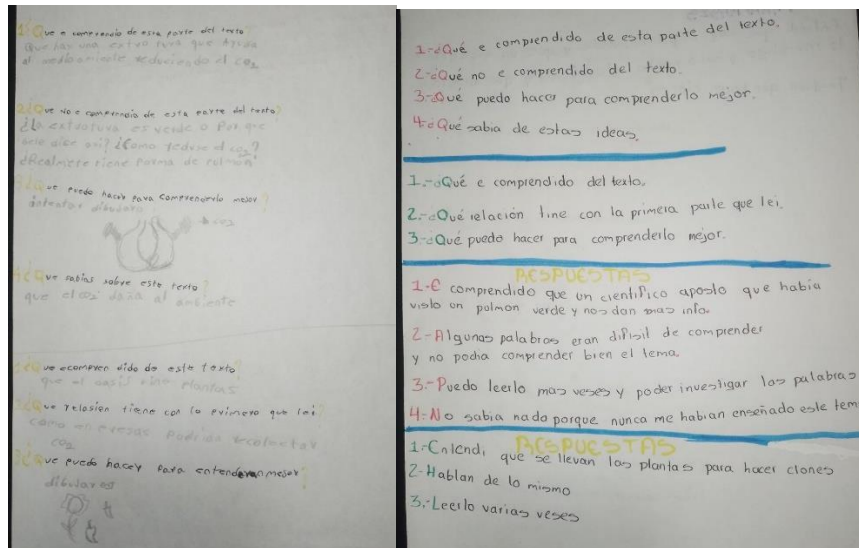 1¿Que e comprendido de esta parte del texto?
Que hay una extructura que ayuda
al medioambiente reduciendo el co2
2¿Que no e comprendido de esta parte del texto?
¿La extructura es verde o Por que
se le dice asi? ¿Como reduse el co2?
¿Realmete tiene forma de pulmon?
3¿Que puedo hacer para comprenderlo mejor?
intentar dibujarlo
co2
4¿Que sabias sobre este texto?
que el co2 daña al ambiente
1¿Que ecompren dido de este texto?
que el oasis tine plantas
2¿Que relasion tiene con lo primero que lei?
como en eresas podrido recolectar
co2
3¿Que puedo hacer para entender mejor?
dibujar
1-¿Qué e comprendido de esta parte del texto.
2-¿Qué no e comprendido del texto.
3-¿Qué puedo hacer para comprenderlo mejor.
4-¿Qué sabia de estas ideas.
1.-¿Qué e comprendido del texto.
2.-¿Qué relación tine con la primera parte que lei.
3-¿Qué puedo hacer para comprenderlo mejor.
RESPUESTAS
1-E comprendido que un cientifico aposto que habia
visto un polmon verde y nos dan mas info.
2-Algunas palabras eran difisil de comprender
y no podia comprender bien el tema.
3.-Puedo leerlo mas veses y poder investigar las palabras
4-No sabia nada porque nunca me habian enseñado este tem
RESPUESTAS
1.-Entendi, que se llevan las plantas para hacer clones
2-Hablan de lo mismo
3.-Leerlo varias veses